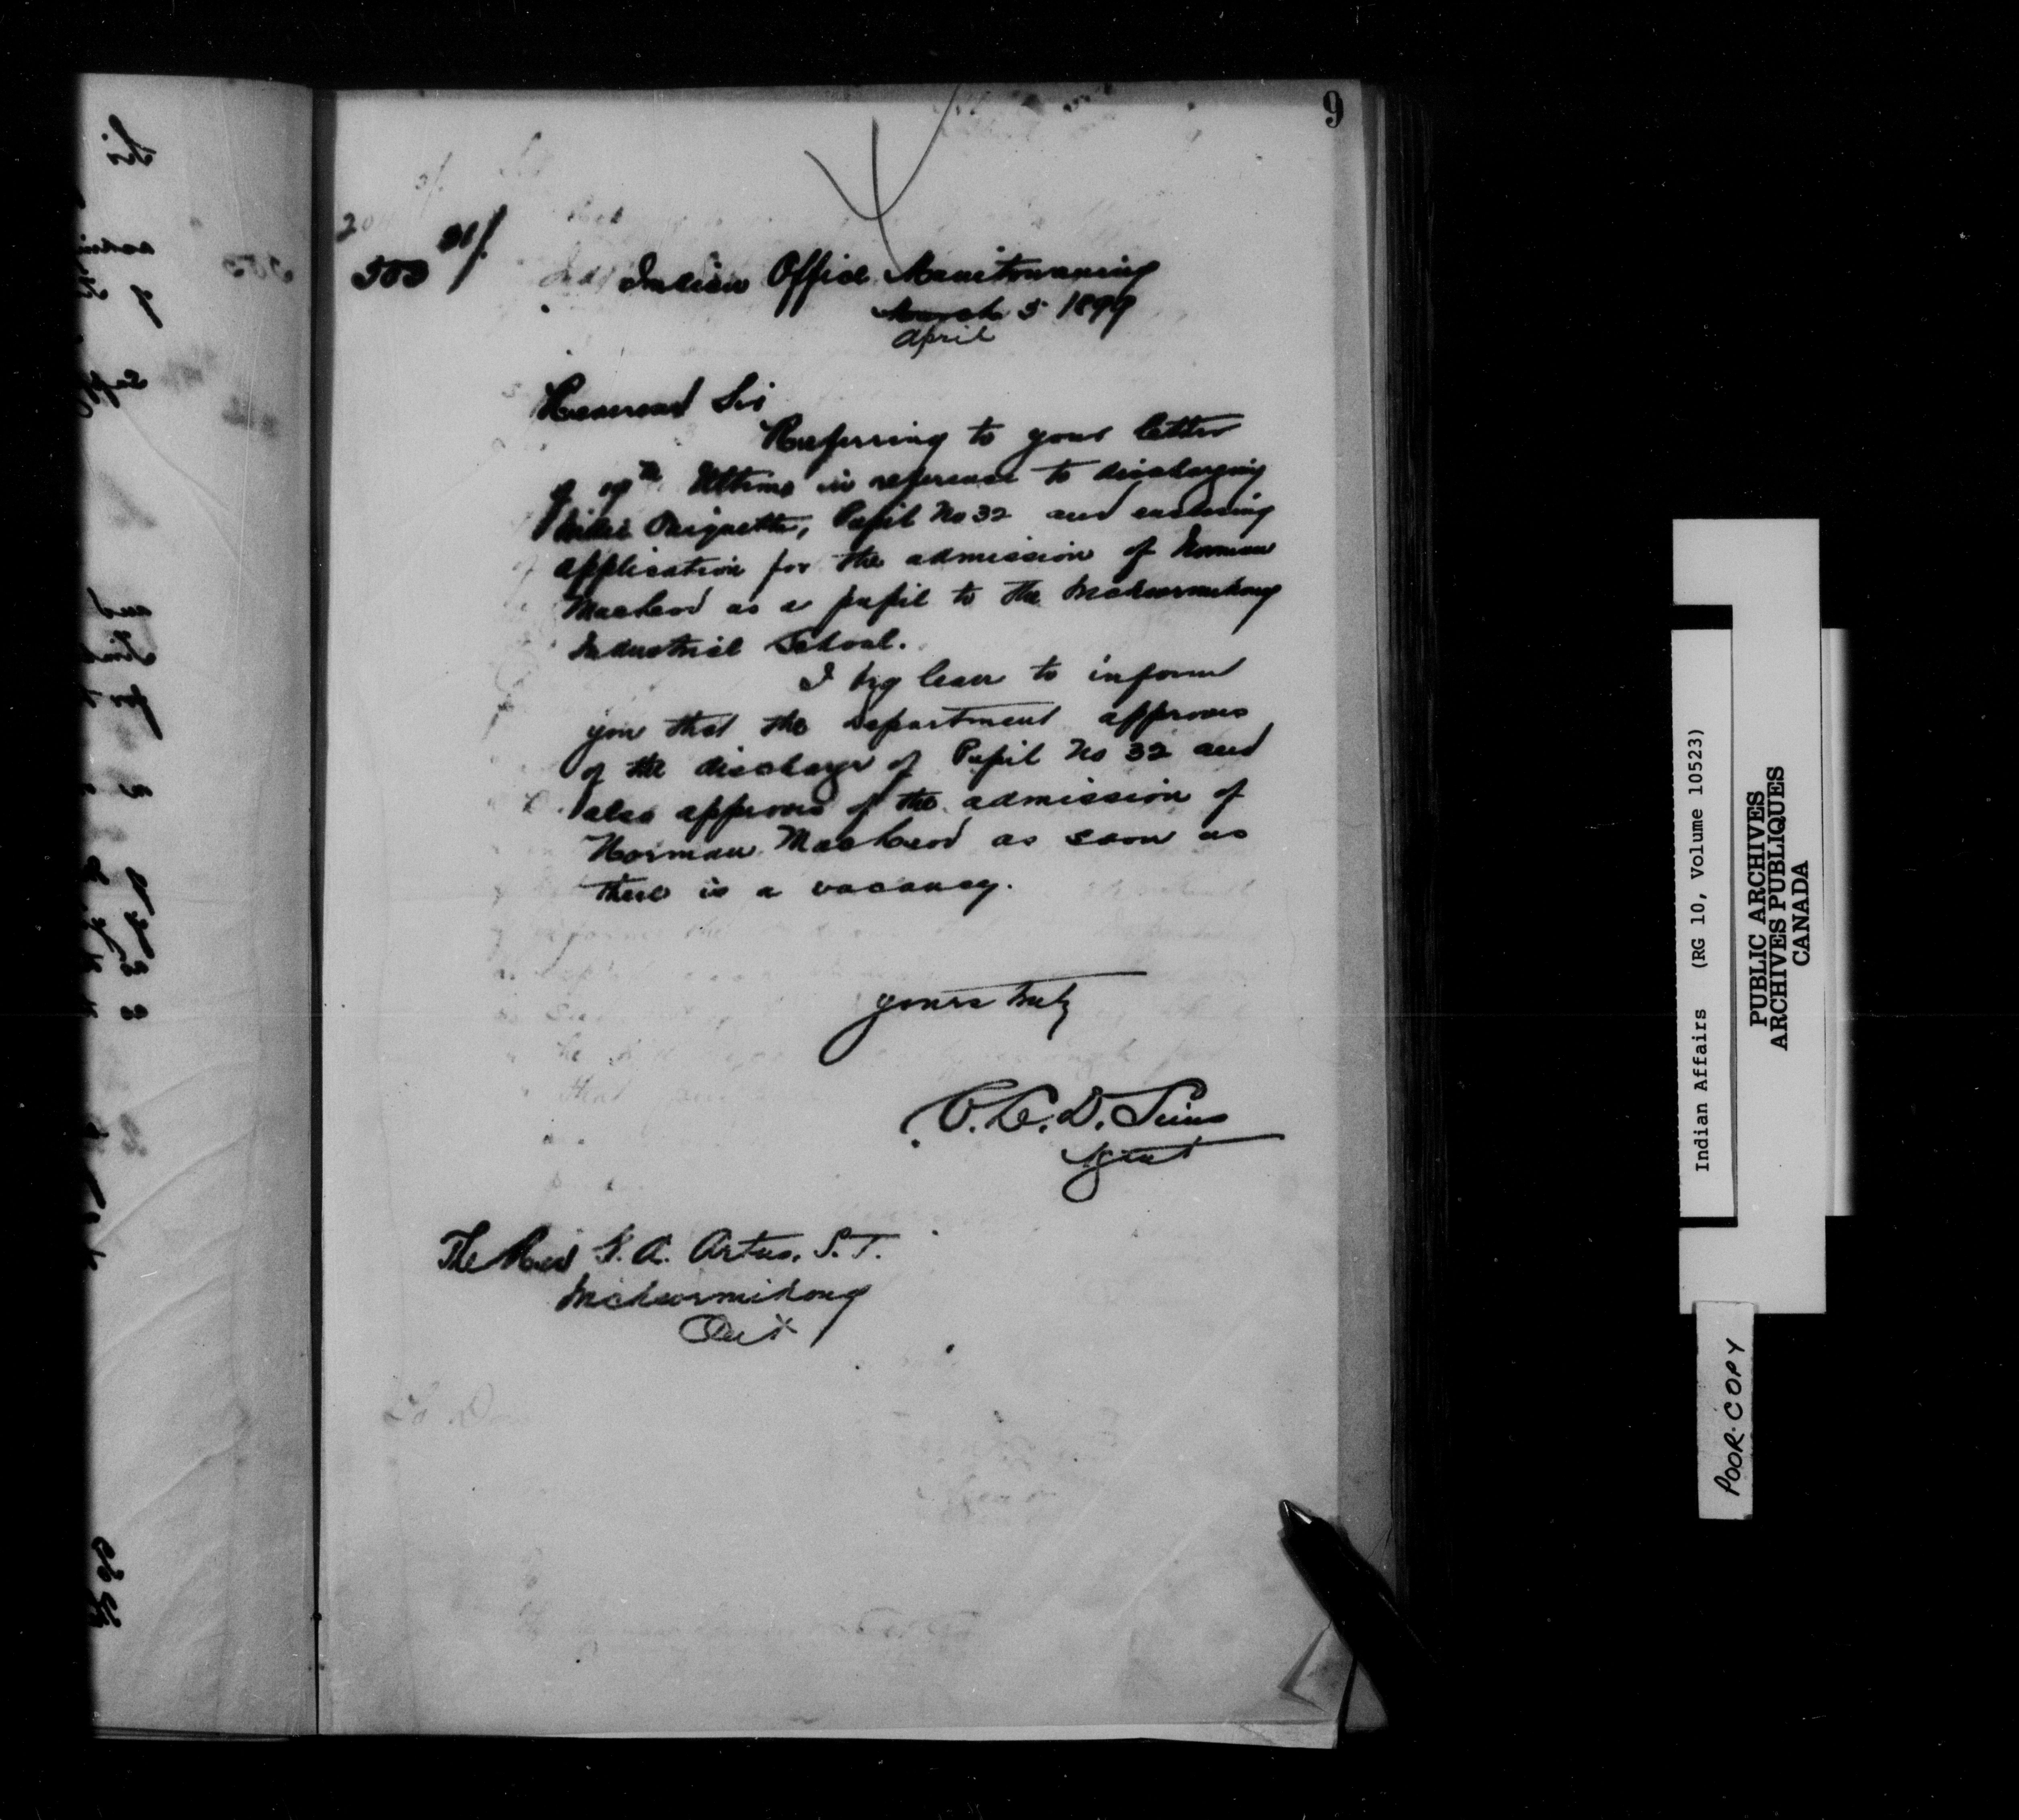 9
503
Indian Office Manitowaning
March 5 1899
April
Reverend Sir
Referring to your letter
of th Ultimo in reference to discharging
Paiquette, Pupil No 32 and enclosing
application for the admission of Norman
MacLeod as a pupil to the Wikwemikong
Industrial School.
I beg leave to inform
you that the Department approves
of the discharge of Pupil No 32 and
also approves of the admission of
Norman MacLeod as soon as
there is a vacancy.
Yours truly
C. L. D. Sims
Agent
The Rev G. A. Artus, S. J.
Wikwemikong
Ont
Indian Affairs (RG 10, Volume 10523)
PUBLIC ARCHIVES
ARCHIVES PUBLIQUES
CANADA
POOR COPY